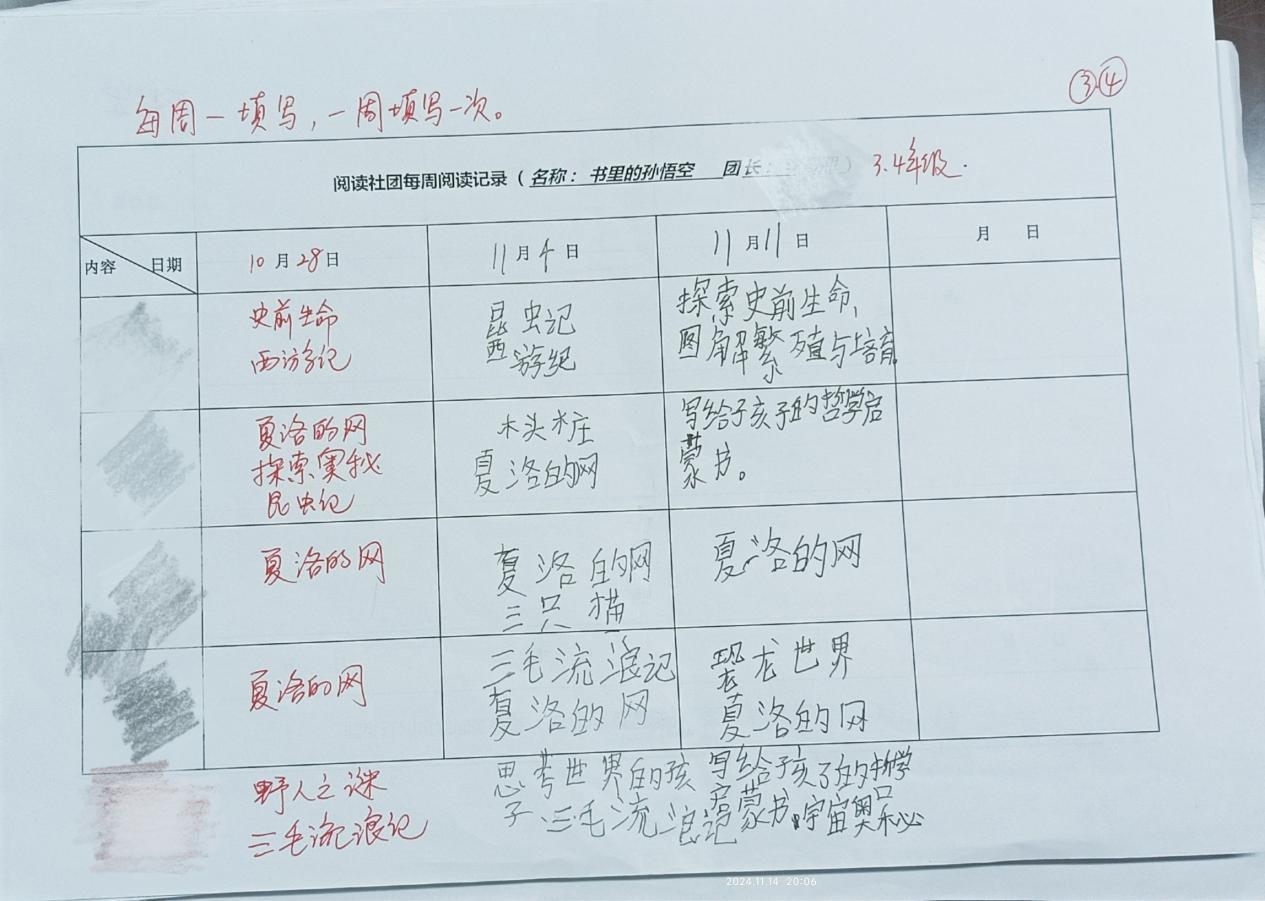 ③④
每周一填写,一周填写一次。
阅读社团每周阅读记录(名称:书里的孙悟空 团长: ) 3.4年级.
内容 日期 10月28日 11月4日 11月11日 月 日
史前生命
西游记
昆虫记
西游纪
探索史前生命,
图解繁殖与培育
夏洛的网
探索奥秘
昆虫记
木头桩
夏洛的网
写给子亥子的哲学启
蒙书。
夏洛的网
夏洛的网
三只猫
夏洛的网
夏洛的网
三毛流浪记
夏洛的网
恐龙世界
夏洛的网
野人之谜
三毛流浪记
思考世界的孩
子.三毛流浪记
写给子亥子的哲学
启蒙书,宇宙奥秘
2024.11.14 20:06